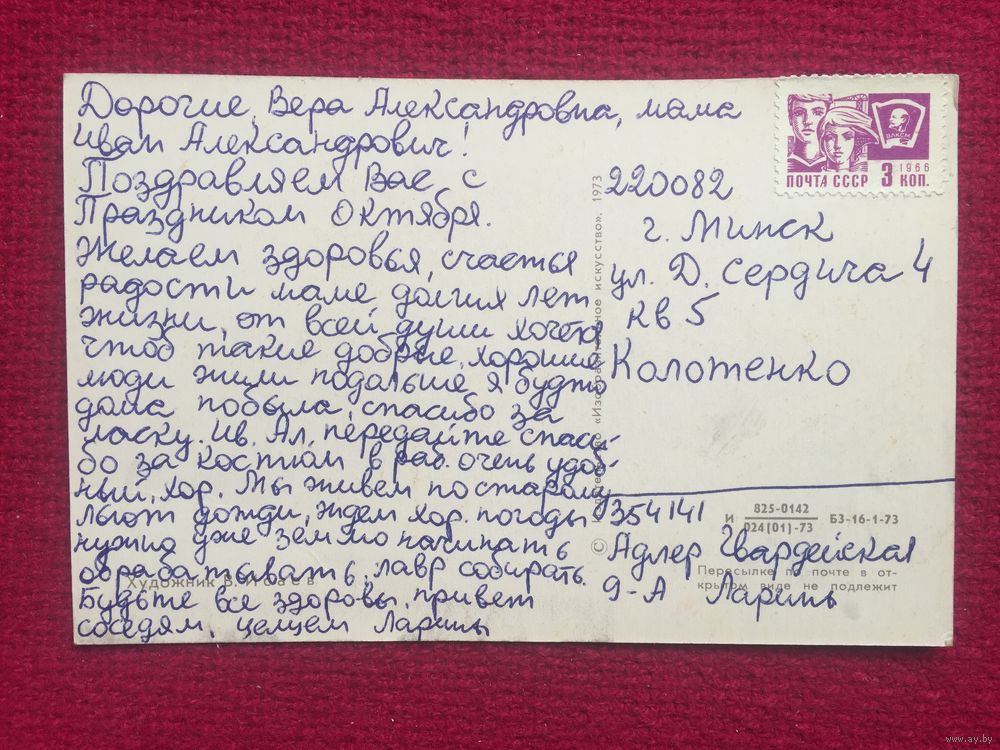 Дорогие, Вера Александровна, мама
Иван Александрович!
Поздравляем Вас с
Праздником Октября.
Желаем здоровья, счастья
радости маме долгих лет
жизни, от всей души хочется
чтоб такие добрые, хорошие
люди жили подальше, я будто
дома побыла, спасибо за
ласку. Ив. Ал. передайте спаси-
бо за костюм в раб. очень удоб-
ный, хор. Мы живем по старому
льют дожди, ждем хор. погоды
нужно уже землю начинать
обрабатывать, лавр собирать.
Будьте все здоровы. привет
соседям, целуем Ларины
Художник В.
ВЛКСМ
1966
ПОЧТА СССР 3 КОП.
220082
г. Минск
ул. Д. Сердича 4
кв 5
Колотенко
© Издательство «Изобразительное искусство». 1973
И 825-0142 БЗ-16-1-73
024(01)-73
354141
Адлер Гвардейская
9-А Ларинь
Пересылке по почте в от-
крытом виде не подлежит
www.ay.by